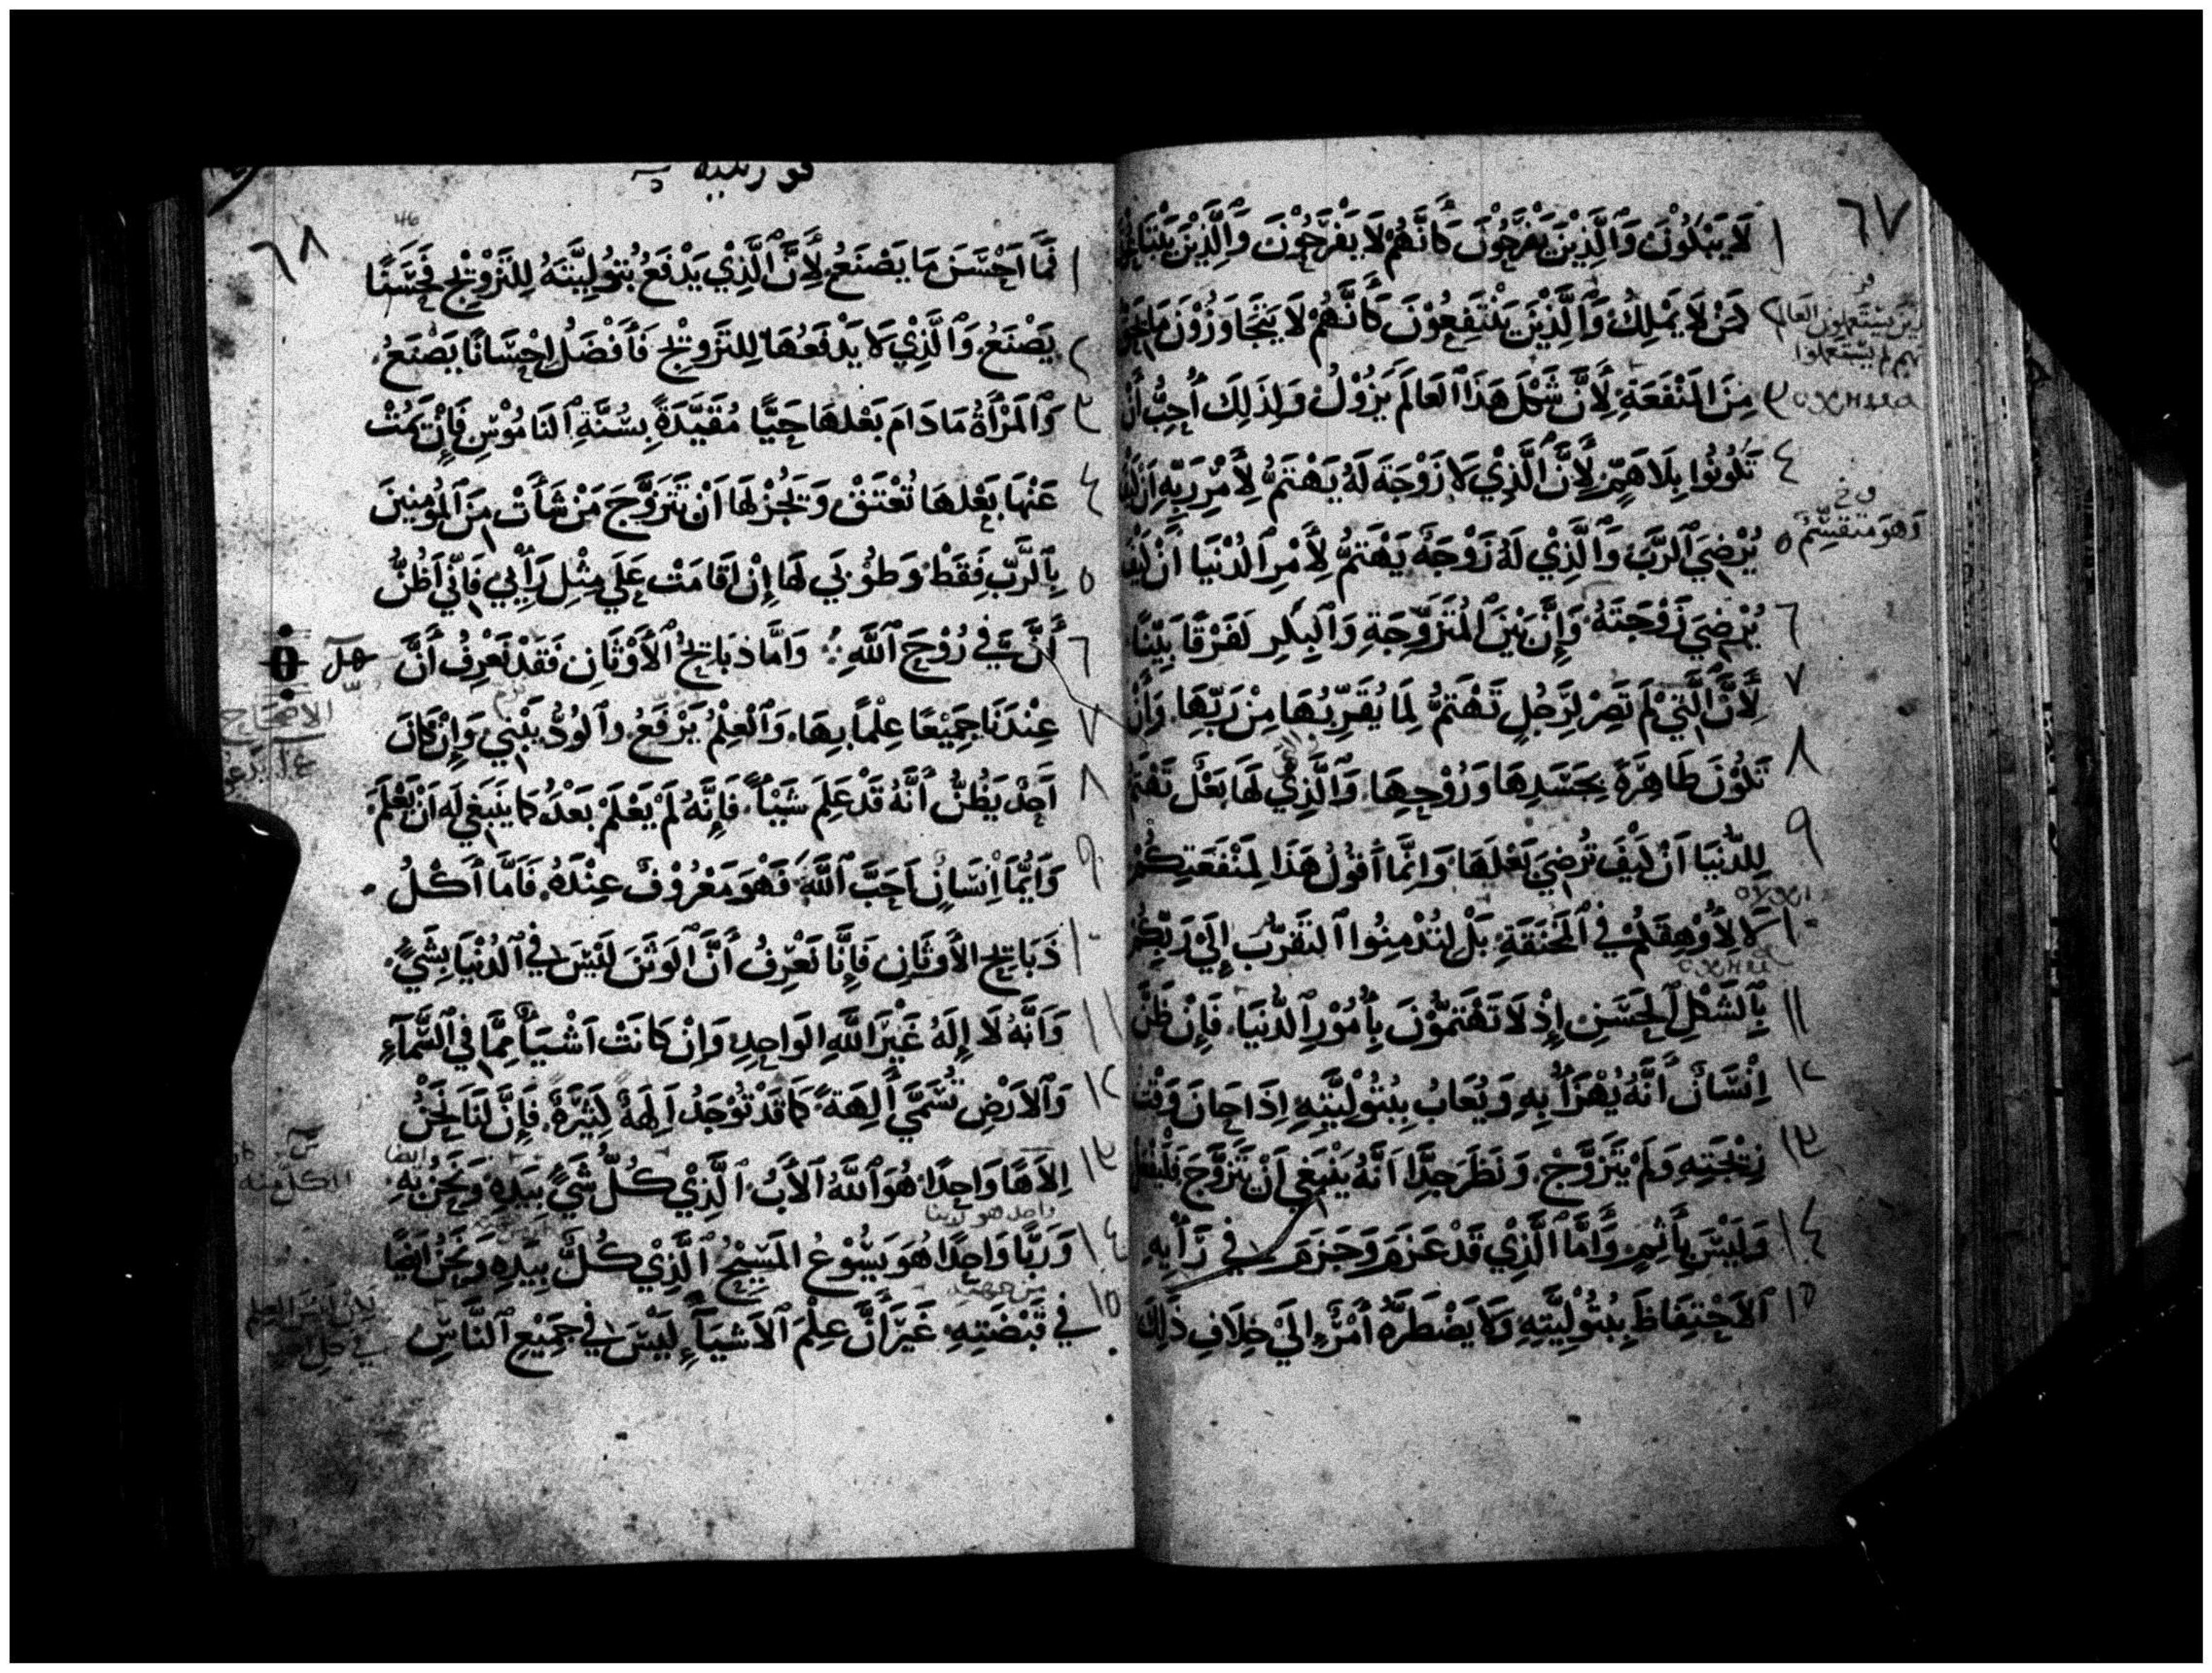 ٦٧
١ لَا يَبْكُوْنَ وَٱلَّذِيْنَ يَفْرَحُوْنَ كَأَنَّهُمْ لَا يَفْرَحُوْنَ وَٱلَّذِيْنَ
٢ كَمَنْ لَا يَمْلِكُ وَٱلَّذِيْنَ يَنْتَفِعُوْنَ كَأَنَّهُمْ لَا يَتَجَاوَزُوْنَ
٣ مِنَ المَنْفَعَةِ لِأَنَّ شَكْلَ هَذَا العَالَمَ يَزُوْلُ وَلِذَلِكَ أُحِبُّ أَنْ
٤ تَكُونُوا بِلَا هَمٍّ لِأَنَّ ٱلَّذِيْ لَا زَوْجَةَ لَهُ يَهْتَمُّ لِأَمْرِ رَبِّهِ
٥ يُرْضِيَ ٱلرَّبَّ وَٱلَّذِيْ لَهُ زَوْجَةٌ يَهْتَمُّ لِأَمْرِ ٱلدُنْيَا أَنْ كَيْفَ
٦ يُرْضِيَ زَوْجَتَهُ وَإِنَّ بَيْنَ ٱلمُتَزَوِّجَةِ وَٱلبِكْرِ لَفَرْقًا بَيِّنًا
٧ لِأَنَّ ٱلَّتِيْ لَمْ تَصِرْ لِرَجُلٍ تَهْتَمُّ لِمَا يُقَرِّبُهَا مِنْ رَبِّهَا وَأَنْ
٨ تَكُوْنَ طَاهِرَةً بِجَسَدِهَا وَرُوْحِهَا وَٱلَّذِي لَهَا بَعْل تَهْتَمُّ
٩ لِلدُّنْيَا اَنْ كَيْفَ تُرْضِيَ بَعْلَهَا وَانِّمَّا أَقُوْلُ هَذَا لِمَنْفَعَتِكُمْ
١٠ لَا لِأُوْهِقَكُمْ فِي ٱلمَخْنَقَةِ بَلْ لِتُدْمِنُوا ٱلتَقَرُّبَ إِلَيْ رَبِّكُمْ
١١ بِٱلشَكْلِ ٱلحَسَنِ إِذْ لَا تَهْتَمُّوْنَ بِأُمُوْرِ ٱلدُّنيَا فَإِنْ ظَنَّ
١٢ اِنْسَانٌ أَنَّهُ يُهْزَأُ بِهِ وَيُعَابُ بِبُتُوْلِيَّتِهِ اِذَا حَانَ وَقْت
١٣ زِيْجَتِهِ وَلَمْ يَتَزَوَّجْ وَنَظَرَ جِدًّا اَنَّهُ يَنْبَغِي اَنْ يَتَزَوَّجَ فَلْيَفْعَل
١٤ وَلَيْسَ يَأْثَمِ وَأَمَّا ٱلَّذِيْ قَدْ عَزَمَ وَجَزَمَ فِي رَأْيِهِ
١٥ ٱلاِحْتِفَاظَ بِبُتُوْلِيَّتِهِ وَلَا يَضْطَرُّهُ أَمْرٌ إِلَيْ خِلَافِ ذَلِكَ
وَهوَ منقسِّمٌ
قورنثيه
٦٨
46
١ فَمَا اَحْسَنَ مَا يَصْنَعُ لِأَنَّ ٱلَّذِيْ يَدْفَعُ بُتُوْلِيَّتَهُ لِلتَزْوِيْجِ فَحَسَنًا
٢ يَصْنَعُ وَٱلَّذِيْ لَا يَدْفَعُهَا لِلتَزْوِيْجِ فَأَفْضَلُ إِحْسَانًا يَصْنَعُ
٣ وَٱلمَرْأَةُ مَا دَامَ بَعْلهَا حَيًّا مُقَيَّدَةٌ بِسُنَّةِ ٱلنَامُوْسِ فَإِنْ يَمُتْ
٤ عَنْهَا بَعْلهَا تُعْتَقْ وَيَجُزْ لَهَا اَنْ تَتَزَوَّجَ مَنْ شَأَتْ مِنَ ٱلمُؤمِنِينَ
٥ بِٱلرَّبِّ فَقَطْ وَطُوْبَي لَهَا إِنْ اَقَامَتْ عَلَي مِثْلِ رَأْيِي فَإِنِّي أَظُنُّ
٦ أَنَّ فِيَّ رُوْحَ ٱللَّهِ وَاَمَّا ذَبَايِحُ ٱلأَوْثَانِ فَقَدْ نَعْرِفُ أَنَّ
٧ عِنْدَنَا جَمِيْعًا عِلْمًا بِهَا وَٱلْعِلْمُ يَرْفَعُ وٱلوُدُّ يَبْنِي وَاِنْ كَانَ
٨ اَحَدٌ يَظُنُّ أَنَّهُ قَدْ عَلِمَ شَيْأً فَإِنَّهُ لَمْ يَعْلَمْ بَعْدُ كَمَا يَنْبَغِي لَه اَنْ يَعْلَمَ
٩ وَايُّمَا اِنْسَانٍ اَحَبَّ ٱللَّهَ فَهَوَ مَعْرُوْفٌ عِنْدَهُ فَاَمَّا أَكْلُ
١٠ ذَبَايِحِ الأَوثَانِ فَإِنَّا نَعْرِفُ أَنَّ ٱلوَثَنَ لَيْسَ فِي ٱلدُنْيَا بِشَيٍّ
١١ وَاَنَّهُ لَا إِلَهُ غَيْرَ ٱللَّهِ الوَاحِدِ وَاِنْ كَانَتْ اَشْيَأُ مِمَّا فِي ٱلسَّمَآءِ
١٢ وَٱلاَرْضِ تُسَمَّي أَلِهَةً كَمَا قَدْ تُوْجَدُ اَلِهَةٌ كَثِيْرَةٌ فَإِنَّ لَنَا نَحْنُ
١٣ اِلاَهًا وَاحِدًا هُوَ ٱللَّهُ ٱلاَبُ ٱلَّذِيْ كُلُّ شَيٍّ بِيَدِهِ وَنَحْنُ بِهِ
واحد هو ربنا
١٤ وَرَبًّا وَاحِدًا هُوَ يَسُوْعُ المَسِيْحُ ٱلَّذِيْ كُلٌّ بِيَدِهِ وَنَحْنُ اَيْضًا
١٥ فِي قَبْضَتِهِ غَيْرَ أَنَّ عِلْمَ ٱلاَشيَآءِ لَيْسَ فِي جَمِيْعِ ٱلنَاسِ